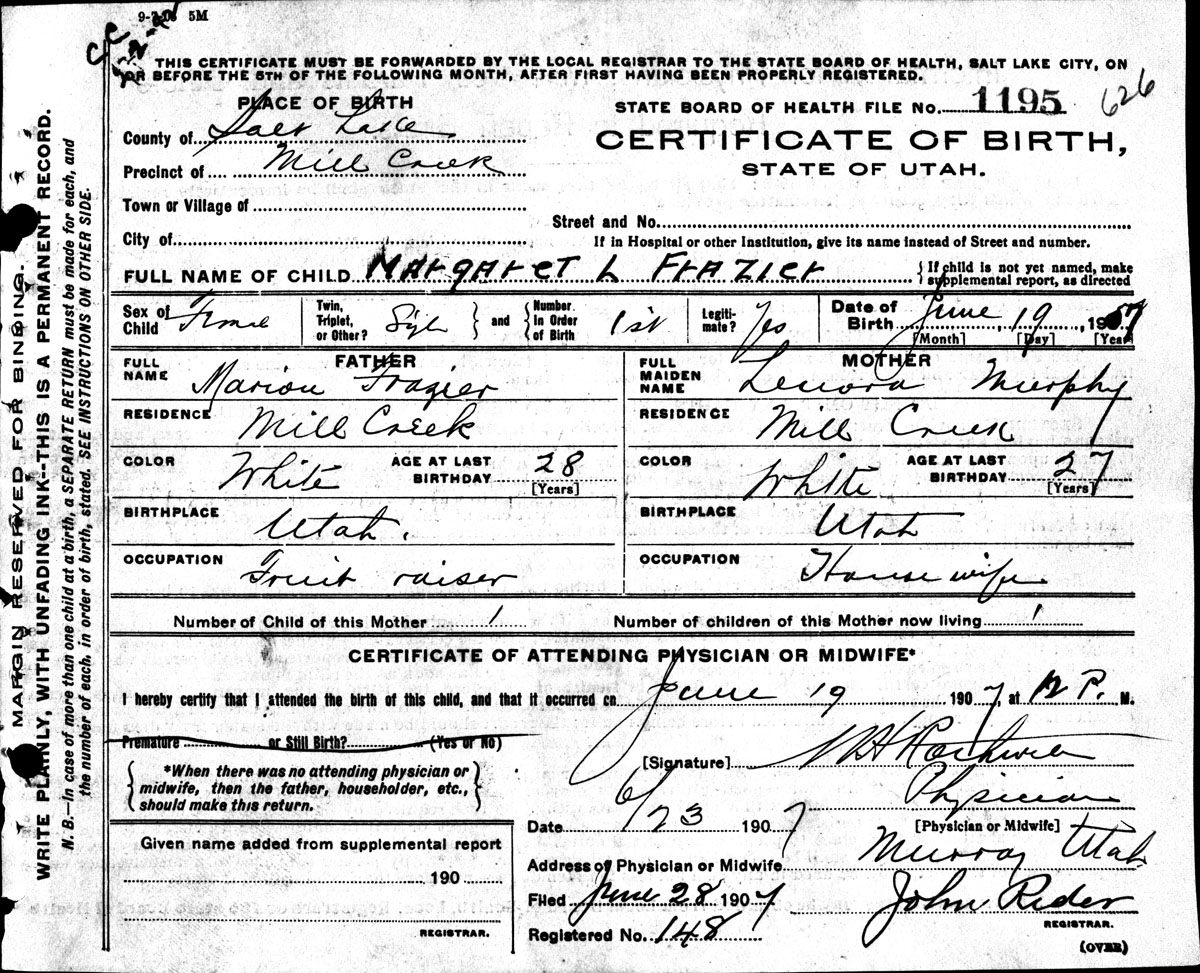 5M
THIS CERTIFICATE MUST BE FORWARDED BY THE LOCAL REGISTRAR TO THE STATE BOARD OF HEALTH, SALT LAKE CITY, ON
OR BEFORE THE 5TH OF THE FOLLOWING MONTH, AFTER FIRST HAVING BEEN PROPERLY REGISTERED.
PLACE OF BIRTH
STATE BOARD OF HEALTH FILE No. 1195 626
County of Salt Lake
CERTIFICATE OF BIRTH,
Precinct of Mill Creek
STATE OF UTAH.
Town or Village of
Street and No.
City of
If in Hospital or other Institution, give its name instead of Street and number.
FULL NAME OF CHILD Margaret L Frazier { If child is not yet named, make supplemental report, as directed
Sex of Child Female
Twin, Triplet, or Other? } and { Number. In Order of Birth 1st
Legitimate? Yes
Date of Birth June 19, 1907
[Month] [Day] [Year]
FATHER
FULL NAME Marion Frazier
MOTHER
FULL MAIDEN NAME Lenora Murphy
RESIDENCE Mill Creek
RESIDENCE Mill Creek
COLOR White AGE AT LAST BIRTHDAY 28 [Years]
COLOR White AGE AT LAST BIRTHDAY 27 [Years]
BIRTHPLACE Utah.
BIRTHPLACE Utah
OCCUPATION Fruit raiser
OCCUPATION Housewife
Number of Child of this Mother 1
Number of children of this Mother now living 1
CERTIFICATE OF ATTENDING PHYSICIAN OR MIDWIFE*
I hereby certify that I attended the birth of this child, and that it occurred on June 19 1907, at 12 P. M.
Premature or Still Birth? (Yes or No)
[Signature]
{ *When there was no attending physician or midwife, then the father, householder, etc., should make this return. }
Physician
Date 6/23 1907
[Physician or Midwife]
Given name added from supplemental report
190
REGISTRAR.
Address of Physician or Midwife Murray Utah
Filed June 28 1907 John Rider
REGISTRAR.
Registered No. 148
(OVER)
MARGIN RESERVED FOR BINDING.
WRITE PLAINLY, WITH UNFADING INK--THIS IS A PERMANENT RECORD.
N. B.—In case of more than one child at a birth, a SEPARATE RETURN must be made for each, and
the number of each, in order of birth, stated. SEE INSTRUCTIONS ON OTHER SIDE.